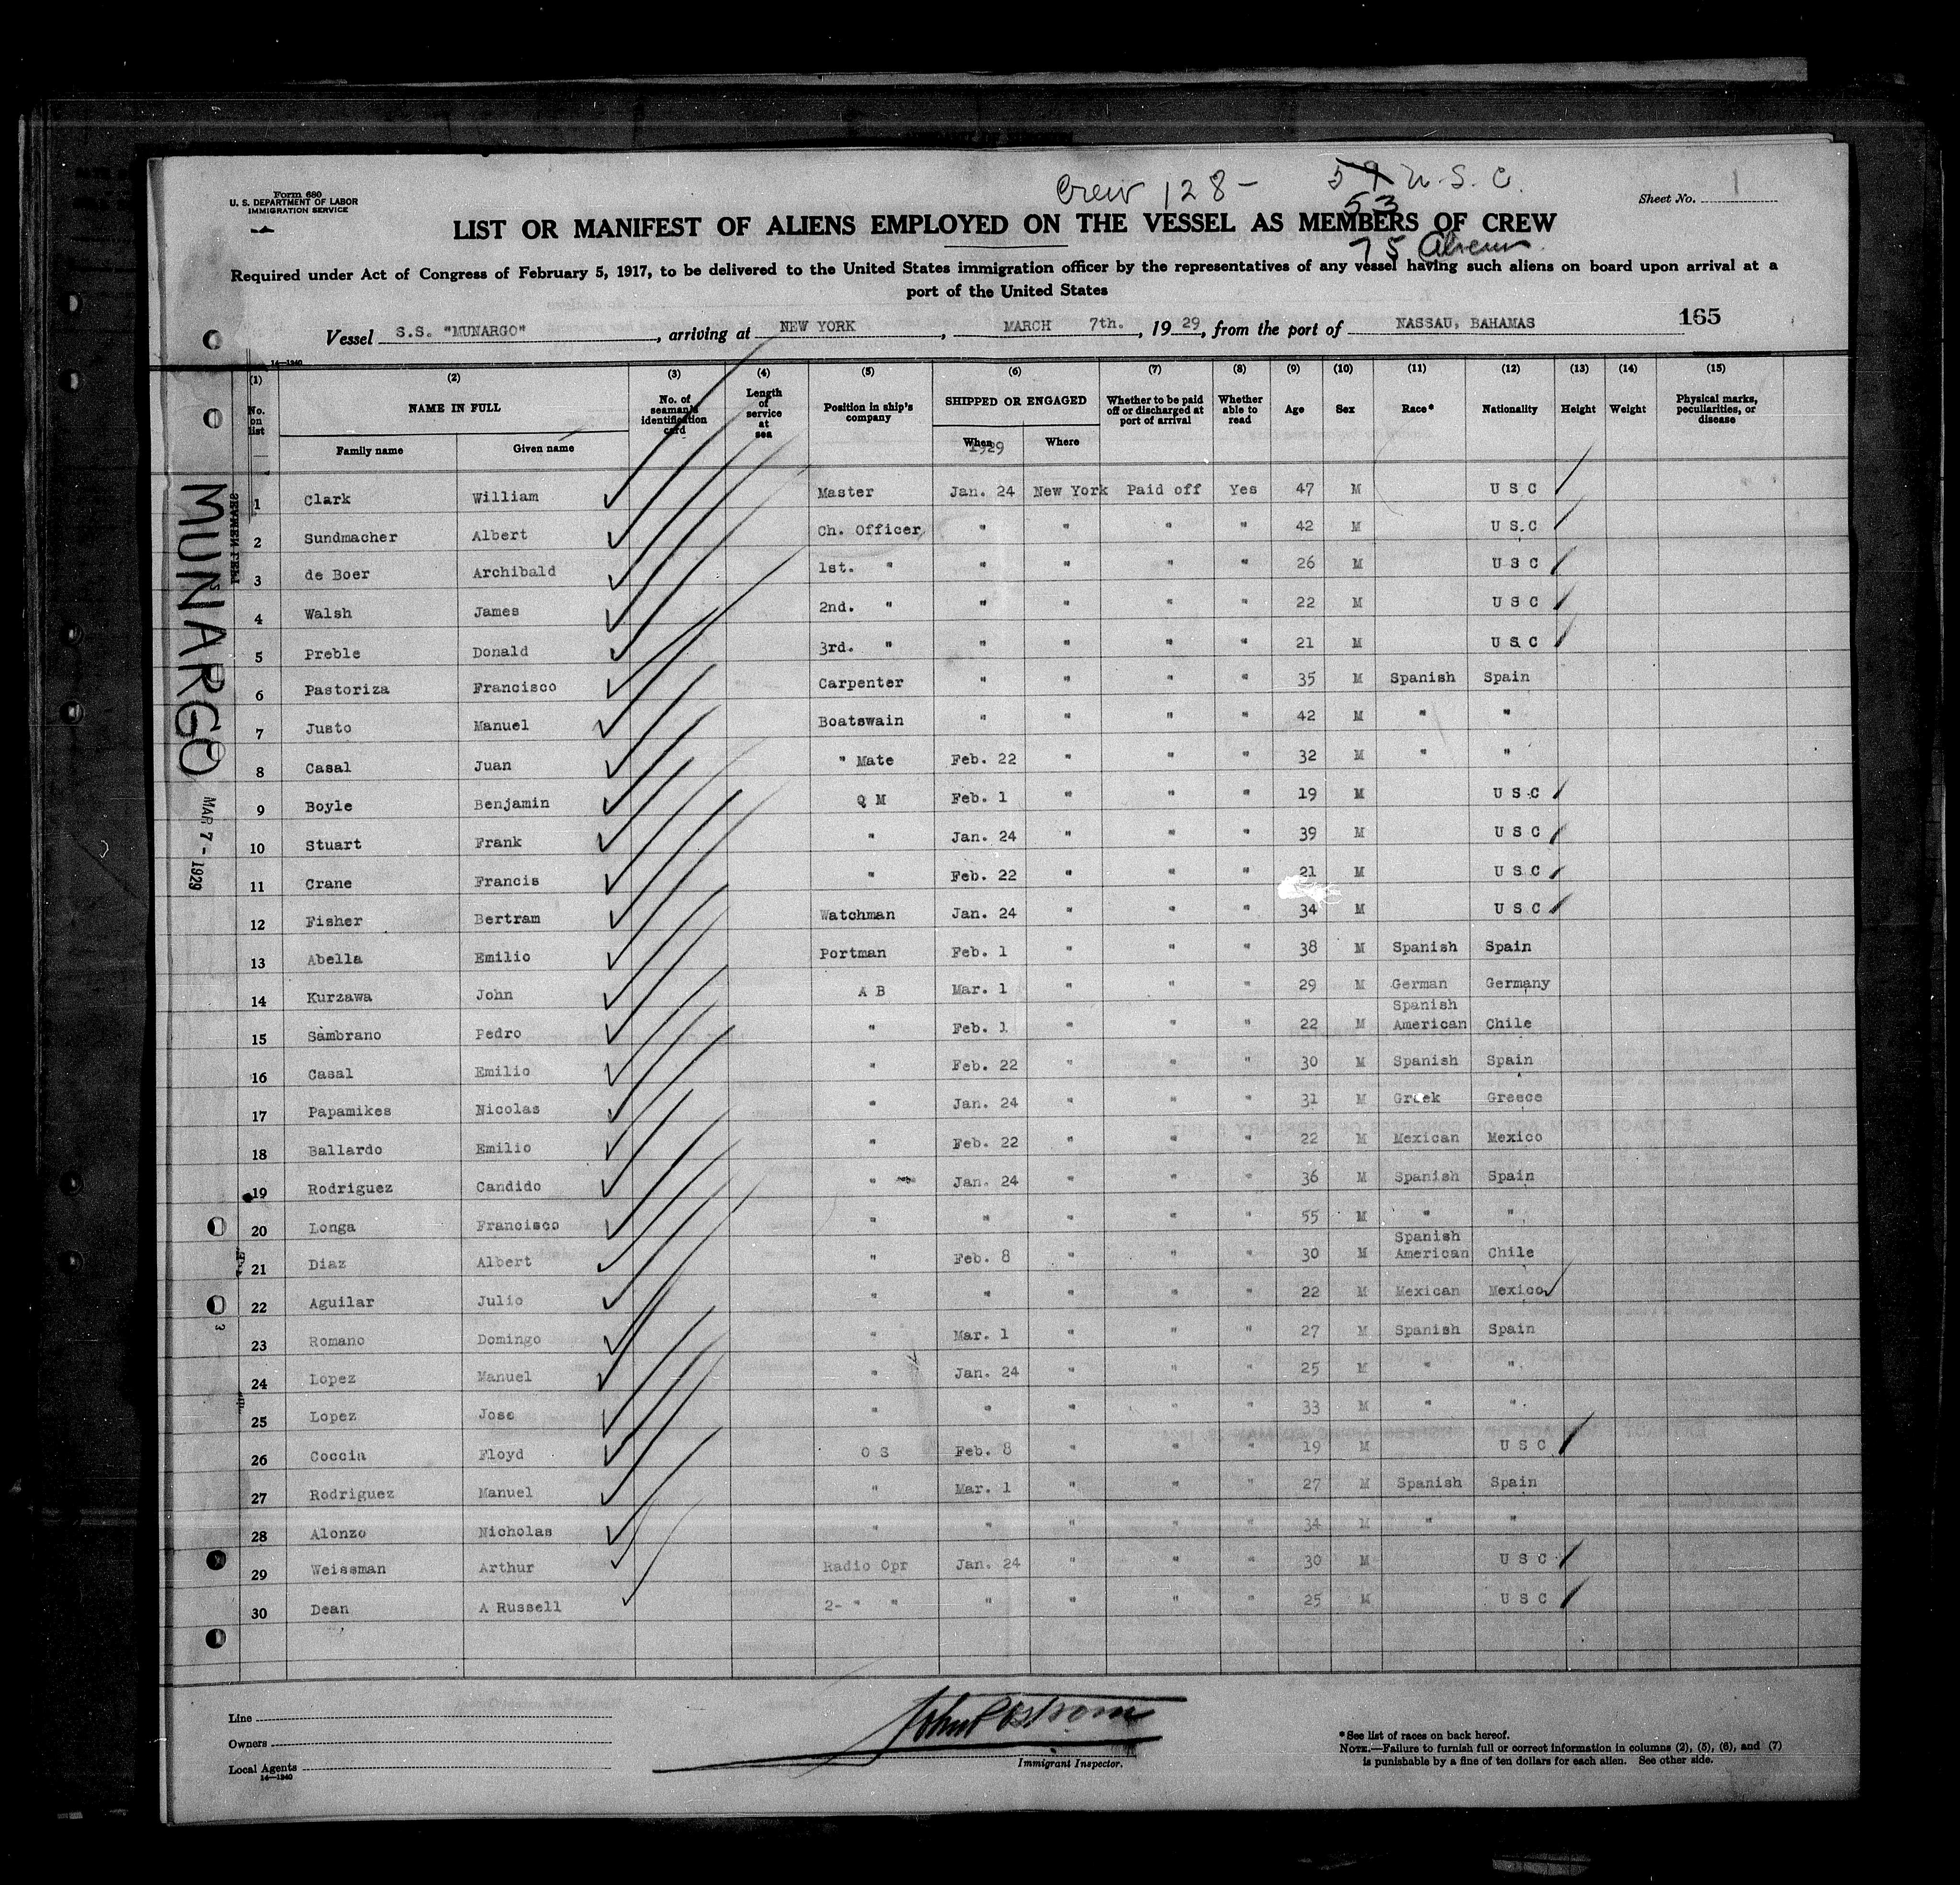 Crew 128 - 59 U.S.C.
53
75 Aliens
Form 680
U. S. DEPARTMENT OF LABOR
IMMIGRATION SERVICE
Sheet No. 1
LIST OR MANIFEST OF ALIENS EMPLOYED ON THE VESSEL AS MEMBERS OF CREW
Required under Act of Congress of February 5, 1917, to be delivered to the United States immigration officer by the representatives of any vessel having such aliens on board upon arrival at a
port of the United States
Vessel S.S. "MUNARGO", arriving at NEW YORK, MARCH 7th., 1929, from the port of NASSAU, BAHAMAS 165
14-1240
(1) (2) (3) (4) (5) (6) (7) (8) (9) (10) (11) (12) (13) (14) (15)
No. on list NAME IN FULL No. of seaman's identification card Length of service at sea Position in ship's company SHIPPED OR ENGAGED Whether to be paid off or discharged at port of arrival Whether able to read Age Sex Race* Nationality Height Weight Physical marks, peculiarities, or disease
Family name Given name When 1929 Where
1 Clark William Master Jan. 24 New York Paid off Yes 47 M U S C
2 Sundmacher Albert Ch. Officer " " " " 42 M U S C
3 de Boer Archibald 1st. " " " " " 26 M U S C
4 Walsh James 2nd. " " " " " 22 M U S C
5 Preble Donald 3rd. " " " " " 21 M U S C
6 Pastoriza Francisco Carpenter " " " " 35 M Spanish Spain
7 Justo Manuel Boatswain " " " " 42 M " "
8 Casal Juan " Mate Feb. 22 " " " 32 M " "
9 Boyle Benjamin Q M Feb. 1 " " " 19 M U S C
10 Stuart Frank " Jan. 24 " " " 39 M U S C
11 Crane Francis " Feb. 22 " " " 21 M U S C
12 Fisher Bertram Watchman Jan. 24 " " " 34 M U S C
13 Abella Emilio Portman Feb. 1 " " " 38 M Spanish Spain
14 Kurzawa John A B Mar. 1 " " " 29 M German Germany
15 Sambrano Pedro " Feb. 1 " " " 22 M Spanish American Chile
16 Casal Emilio " Feb. 22 " " " 30 M Spanish Spain
17 Papamikes Nicolas " Jan. 24 " " " 31 M Greek Greece
18 Ballardo Emilio " Feb. 22 " " " 22 M Mexican Mexico
19 Rodriguez Candido " Jan. 24 " " " 36 M Spanish Spain
20 Longa Francisco " " " " " 55 M " "
21 Diaz Albert " Feb. 8 " " " 30 M Spanish American Chile
22 Aguilar Julio " " " " " 22 M Mexican Mexico
23 Romano Domingo " Mar. 1 " " " 27 M Spanish Spain
24 Lopez Manuel " Jan. 24 " " " 25 M " "
25 Lopez Jose " " " " " 33 M " "
26 Coccia Floyd O S Feb. 8 " " " 19 M U S C
27 Rodriguez Manuel " Mar. 1 " " " 27 M Spanish Spain
28 Alonzo Nicholas " " " " " 34 M " "
29 Weissman Arthur Radio Opr Jan. 24 " " " 30 M U S C
30 Dean A Russell 2- " " " " " " 25 M U S C
MUNARGO
MAR 7 - 1929
Line
Owners
Local Agents
14-1240
Immigrant Inspector.
*See list of races on back hereof.
NOTE.—Failure to furnish full or correct information in columns (2), (5), (6), and (7)
is punishable by a fine of ten dollars for each alien. See other side.